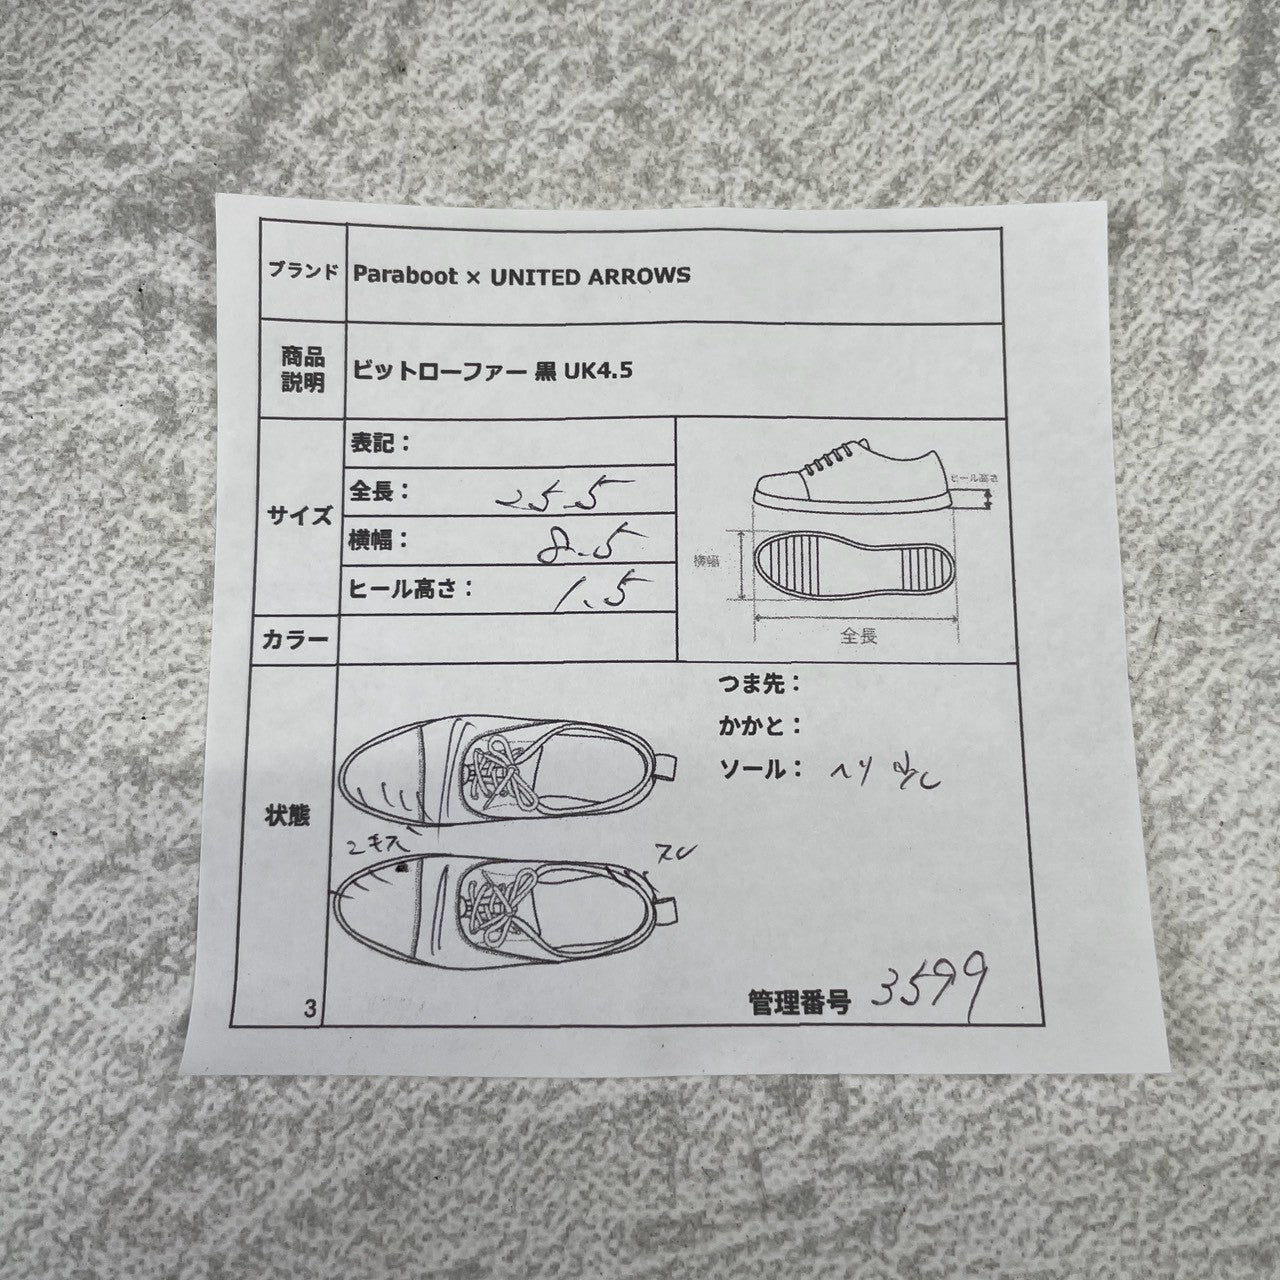 ブランド
Paraboot × UNITED ARROWS
商品
説明
ビットローファー 黒 UK4.5
サイズ
表記：
全長： 25.5
横幅： 8.5
ヒール高さ： 1.5
ヒール高さ
横幅
全長
カラー
状態
つま先：
かかと：
ソール： ヘリ
スレ
3
管理番号 3599